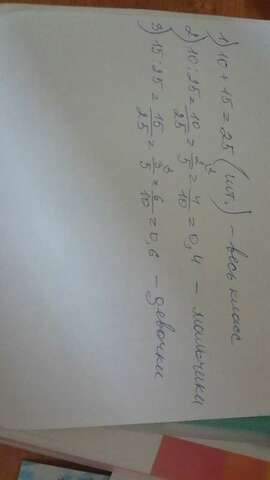 1) 10 + 15 = 25 (шт.) - весь класс
2) 10 : 25 = 10/25 = 2/5 = 4/10 = 0,4 - мальчики
3) 15 : 25 = 15/25 = 3/5 = 6/10 = 0,6 - девочки